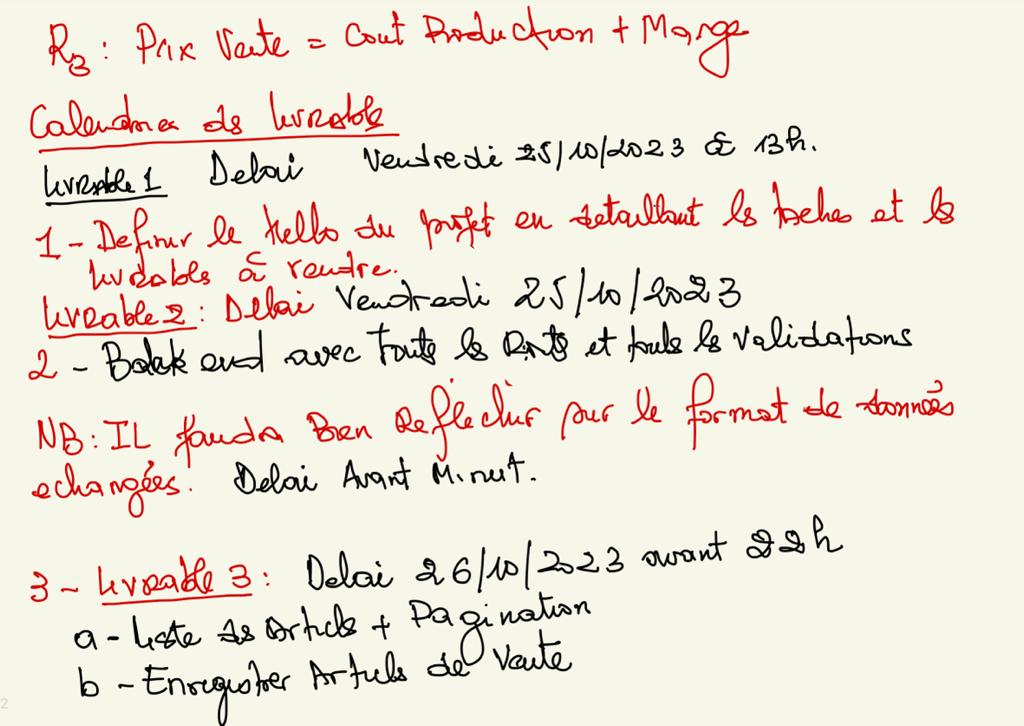 R3 : Prix Vente = Cout Production + Marge
Calendrier des livrable
livrable 1 Delai Vendredi 25/10/2023 à 13h.
1 - Definir le trello du projet en detaillant les taches et les
livrables à rendre.
livrable 2 : Delai Vendredi 25/10/2023
2 - Back end avec Toute les Rnts et touts les validations
NB : IL faudra Bien Réflechir sur le format de données
echangées. Delai Avant Minuit.
3 - livrable 3 : Delai 26/10/2023 avant 22h
a - liste des Articles + Pagination
b - Enregistrer Articles de Vente
2